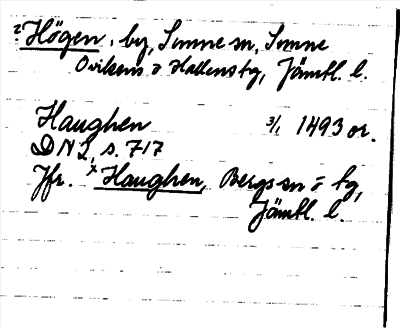 ? Högen, by, Sunne sn, Sunne
Oviksens o Hallenstg, Jämtl. l.
Haughen 3/1 1493 or.
DN I, s. 717
Jfr. x Haughen, Bergs sn o tg,
Jämtl. l.